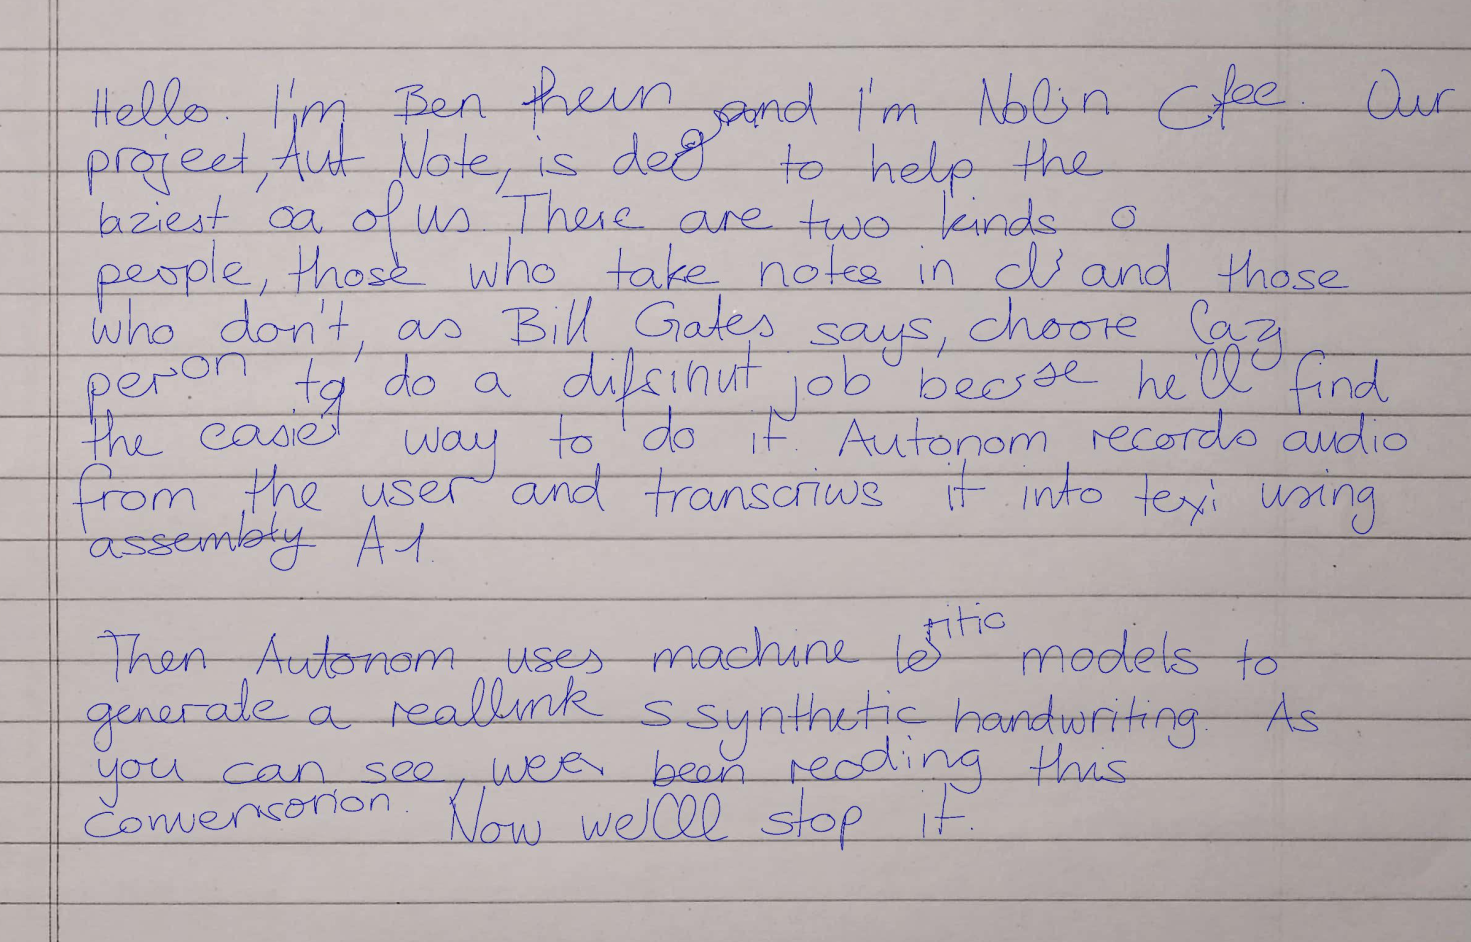 Hello. I'm Ben thein and I'm Nolin Cfee. Our
project, Aut Note, is deg to help the
laziest oa of us. There are two kinds o
people, those who take notes in cl and those
who don't, as Bill Gates says, choore lazy
peron to do a difsinut job becsse he'll find
the casiet way to do it. Autonom records audio
from the user and transcriws it into texi using
assembly A1.
Then Autonom uses machine models to
generate a reallink s synthetic handwriting. As
you can see, been reading this
conversorion. Now we'lll stop it.